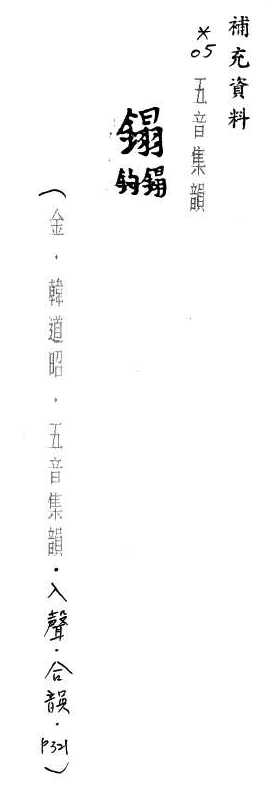 補充資料
*05 五音集韻
鎉
鈎鎉
(金．韓道昭．五音集韻．入聲．合韻．P321)